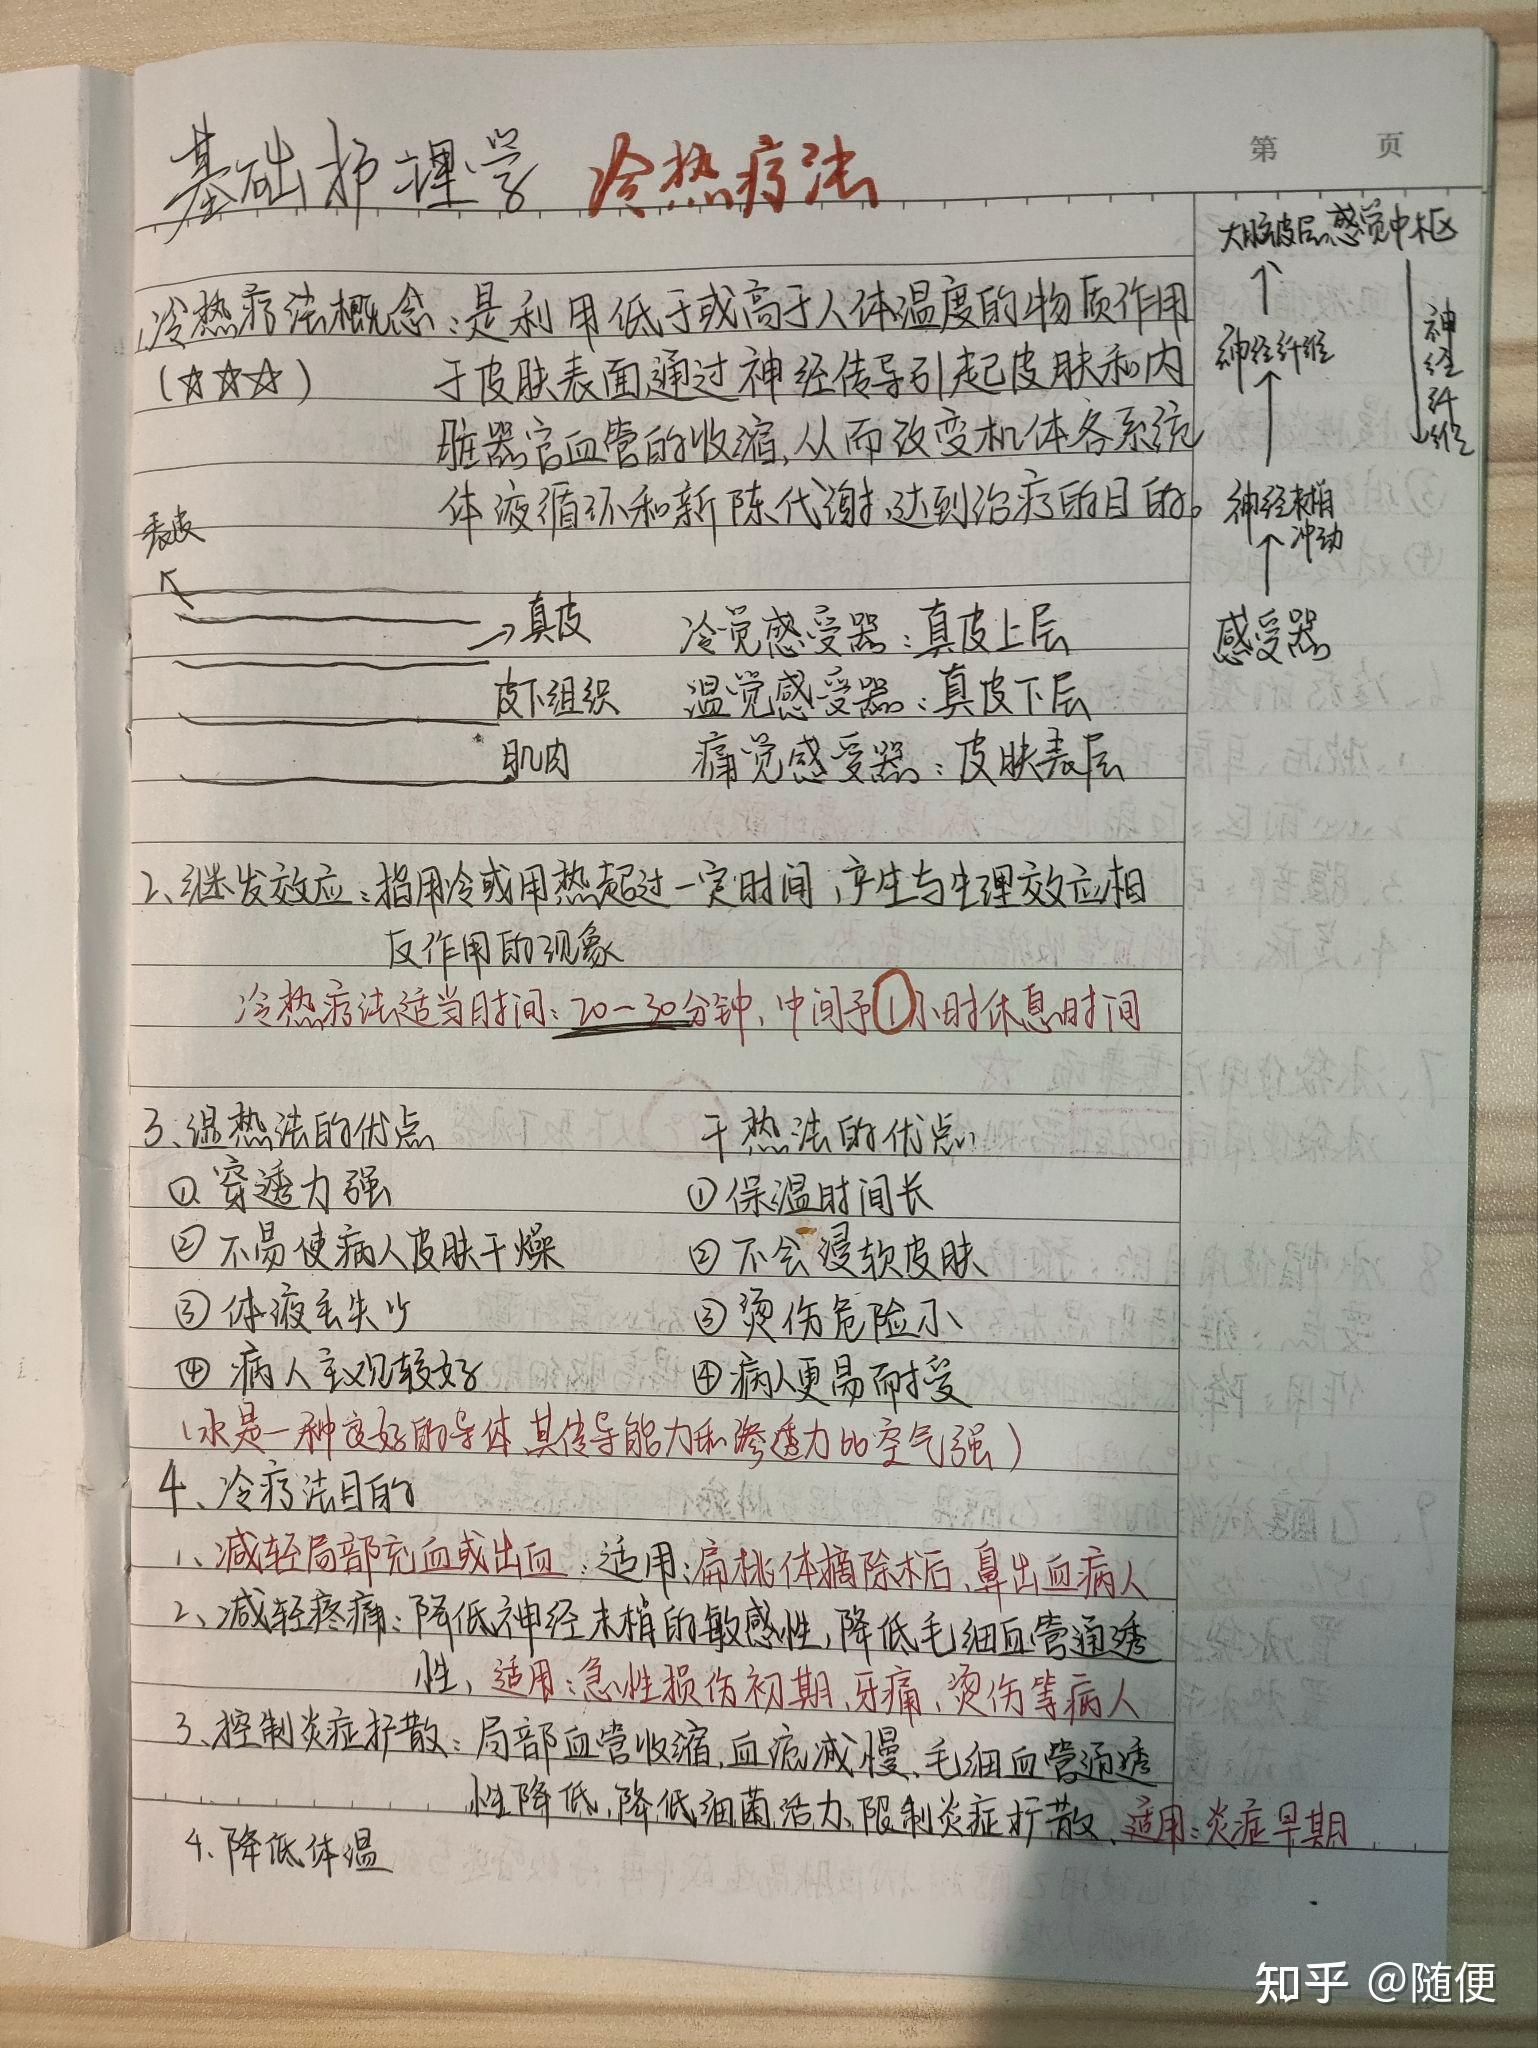 第 页
基础护理学 冷热疗法
1、冷热疗法概念：是利用低于或高于人体温度的物质作用
(☆☆☆) 于皮肤表面,通过神经传导引起皮肤和内
脏器官血管的收缩,从而改变机体各系统
体液循环和新陈代谢,达到治疗的目的。
大脑皮层感觉中枢
神经纤维
神经纤维
神经末梢
冲动
感受器
表皮
真皮 冷觉感受器：真皮上层
皮下组织 温觉感受器：真皮下层
肌肉 痛觉感受器：皮肤表层
2、继发效应：指用冷或用热超过一定时间,产生与生理效应相
反作用的现象
冷热疗法适当时间：20－30分钟,中间予①小时休息时间
3、湿热法的优点 干热法的优点
① 穿透力强 ①保温时间长
② 不易使病人皮肤干燥 ②不会浸软皮肤
③ 体液丢失少 ③烫伤危险小
④ 病人主观较好 ④病人更易耐受
(水是一种良好的导体,其传导能力和渗透力比空气强)
4、冷疗法目的
1、减轻局部充血或出血：适用：扁桃体摘除术后、鼻出血病人
2、减轻疼痛：降低神经末梢的敏感性,降低毛细血管通透
性,适用：急性损伤初期、牙痛、烫伤等病人
3、控制炎症扩散：局部血管收缩,血流减慢、毛细血管通透
性降低,降低细菌活力、限制炎症扩散、适用：炎症早期
4、降低体温
知乎 @随便